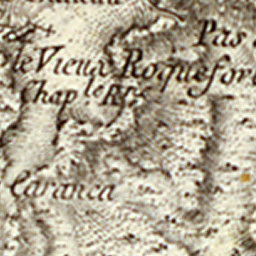 Pas
le Vieux Roquefor
Chap.le Rss
Caranca